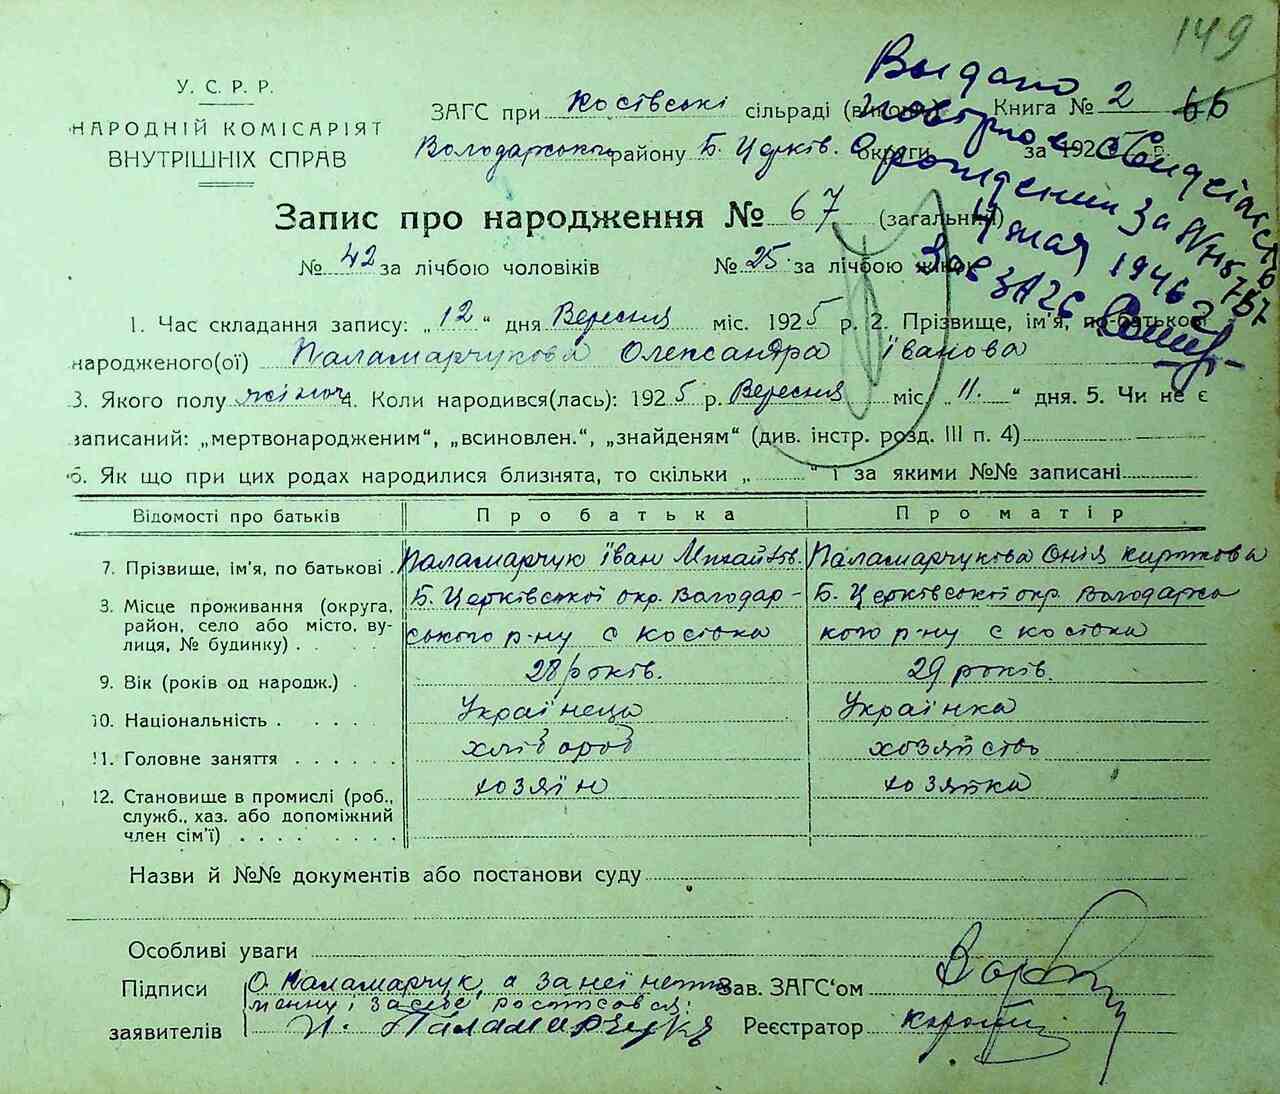 149
У. С. Р. Р.
НАРОДНІЙ КОМІСАРІЯТ
ВНУТРІШНІХ СПРАВ
ЗАГС при Косівські сільраді Книга № 2 66
Володарського району Б. Церків. округи за 192
Выдано
повторное свидетельство
о рождении за
17 мая 1946 г
Зав ЗАГС
Запис про народження № 67 (загальний)
№ 42 за лічбою чоловіків № 25 за лічбою жінок
1. Час складання запису: „12“ дня Вересня міс. 1925 р. 2. Прізвище, ім'я, по-батькові
народженого(ої) Паламарчукова Олександра Іванова
3. Якого полу жіноч 4. Коли народився(лась): 1925 р. Вересня міс. „11.“ дня. 5. Чи не є
записаний: „мертвонародженим“, „всиновлен.“, „знайденям“ (див. інстр. розд. III п. 4)
6. Як що при цих родах народилися близнята, то скільки „ “ і за якими №№ записані
Відомості про батьків Про батька Про матір
7. Прізвище, ім'я, по батькові . Паламарчук Іван Михайлов. Паламарчукова Онія
8. Місце проживання (округа, Б. Церківської окр. Володар- Б. Церківської окр. Володарсь
район, село або місто, ву- ського р-ну с Косівка кого р-ну с Косівка
лиця, № будинку) . . . .
9. Вік (років од народж.) . 28 років. 29 років.
10. Національність . . . . Українець Українка
11. Головне заняття . . . . . . хлібороб хозяйство
12. Становище в промислі (роб., хозяїн хозяйка
служб., хаз. або допоміжний
член сім'ї) . . . . . . . .
Назви й №№ документів або постанови суду
Особливі уваги
Підписи О. Паламарчук, а за неї Зав. ЗАГС'ом
і за себе росписався:
заявителів И. Паламарчук Реєстратор